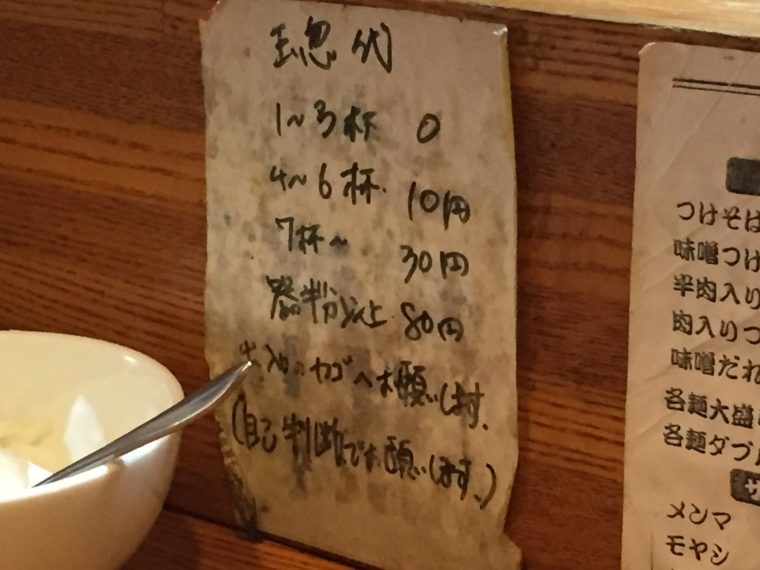 玉忽代
1〜3杯 0
4〜6杯 10円
7杯〜 30円
器半分以上 80円
カゴへお願いします。
(自己判断でお願いします。)
つけそば
味噌つけ
半肉入り
肉入りつ
味噌だれ
各麺大盛
各麺ダブル
メンマ
モヤシ